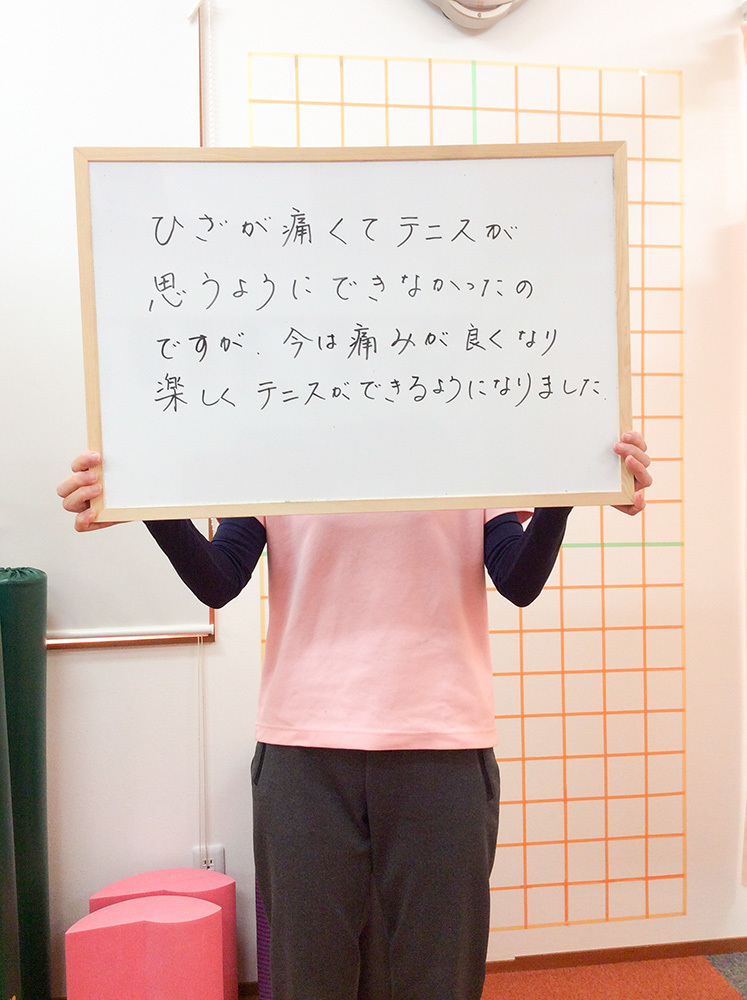 ひざが痛くてテニスが
思うようにできなかったの
ですが、今は痛みが良くなり
楽しくテニスができるようになりました。